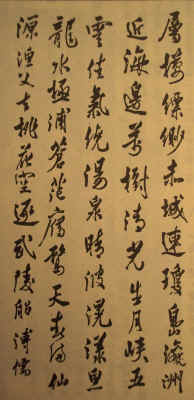 層樓縹緲赤城連瓊島瀛洲
近海邊萬樹清光生月峽五
雲佳氣繞湯泉晴波滉漾魚
龍水極浦蒼茫雁鶩天仙
源漁父去桃花空逐武陵船溥儒